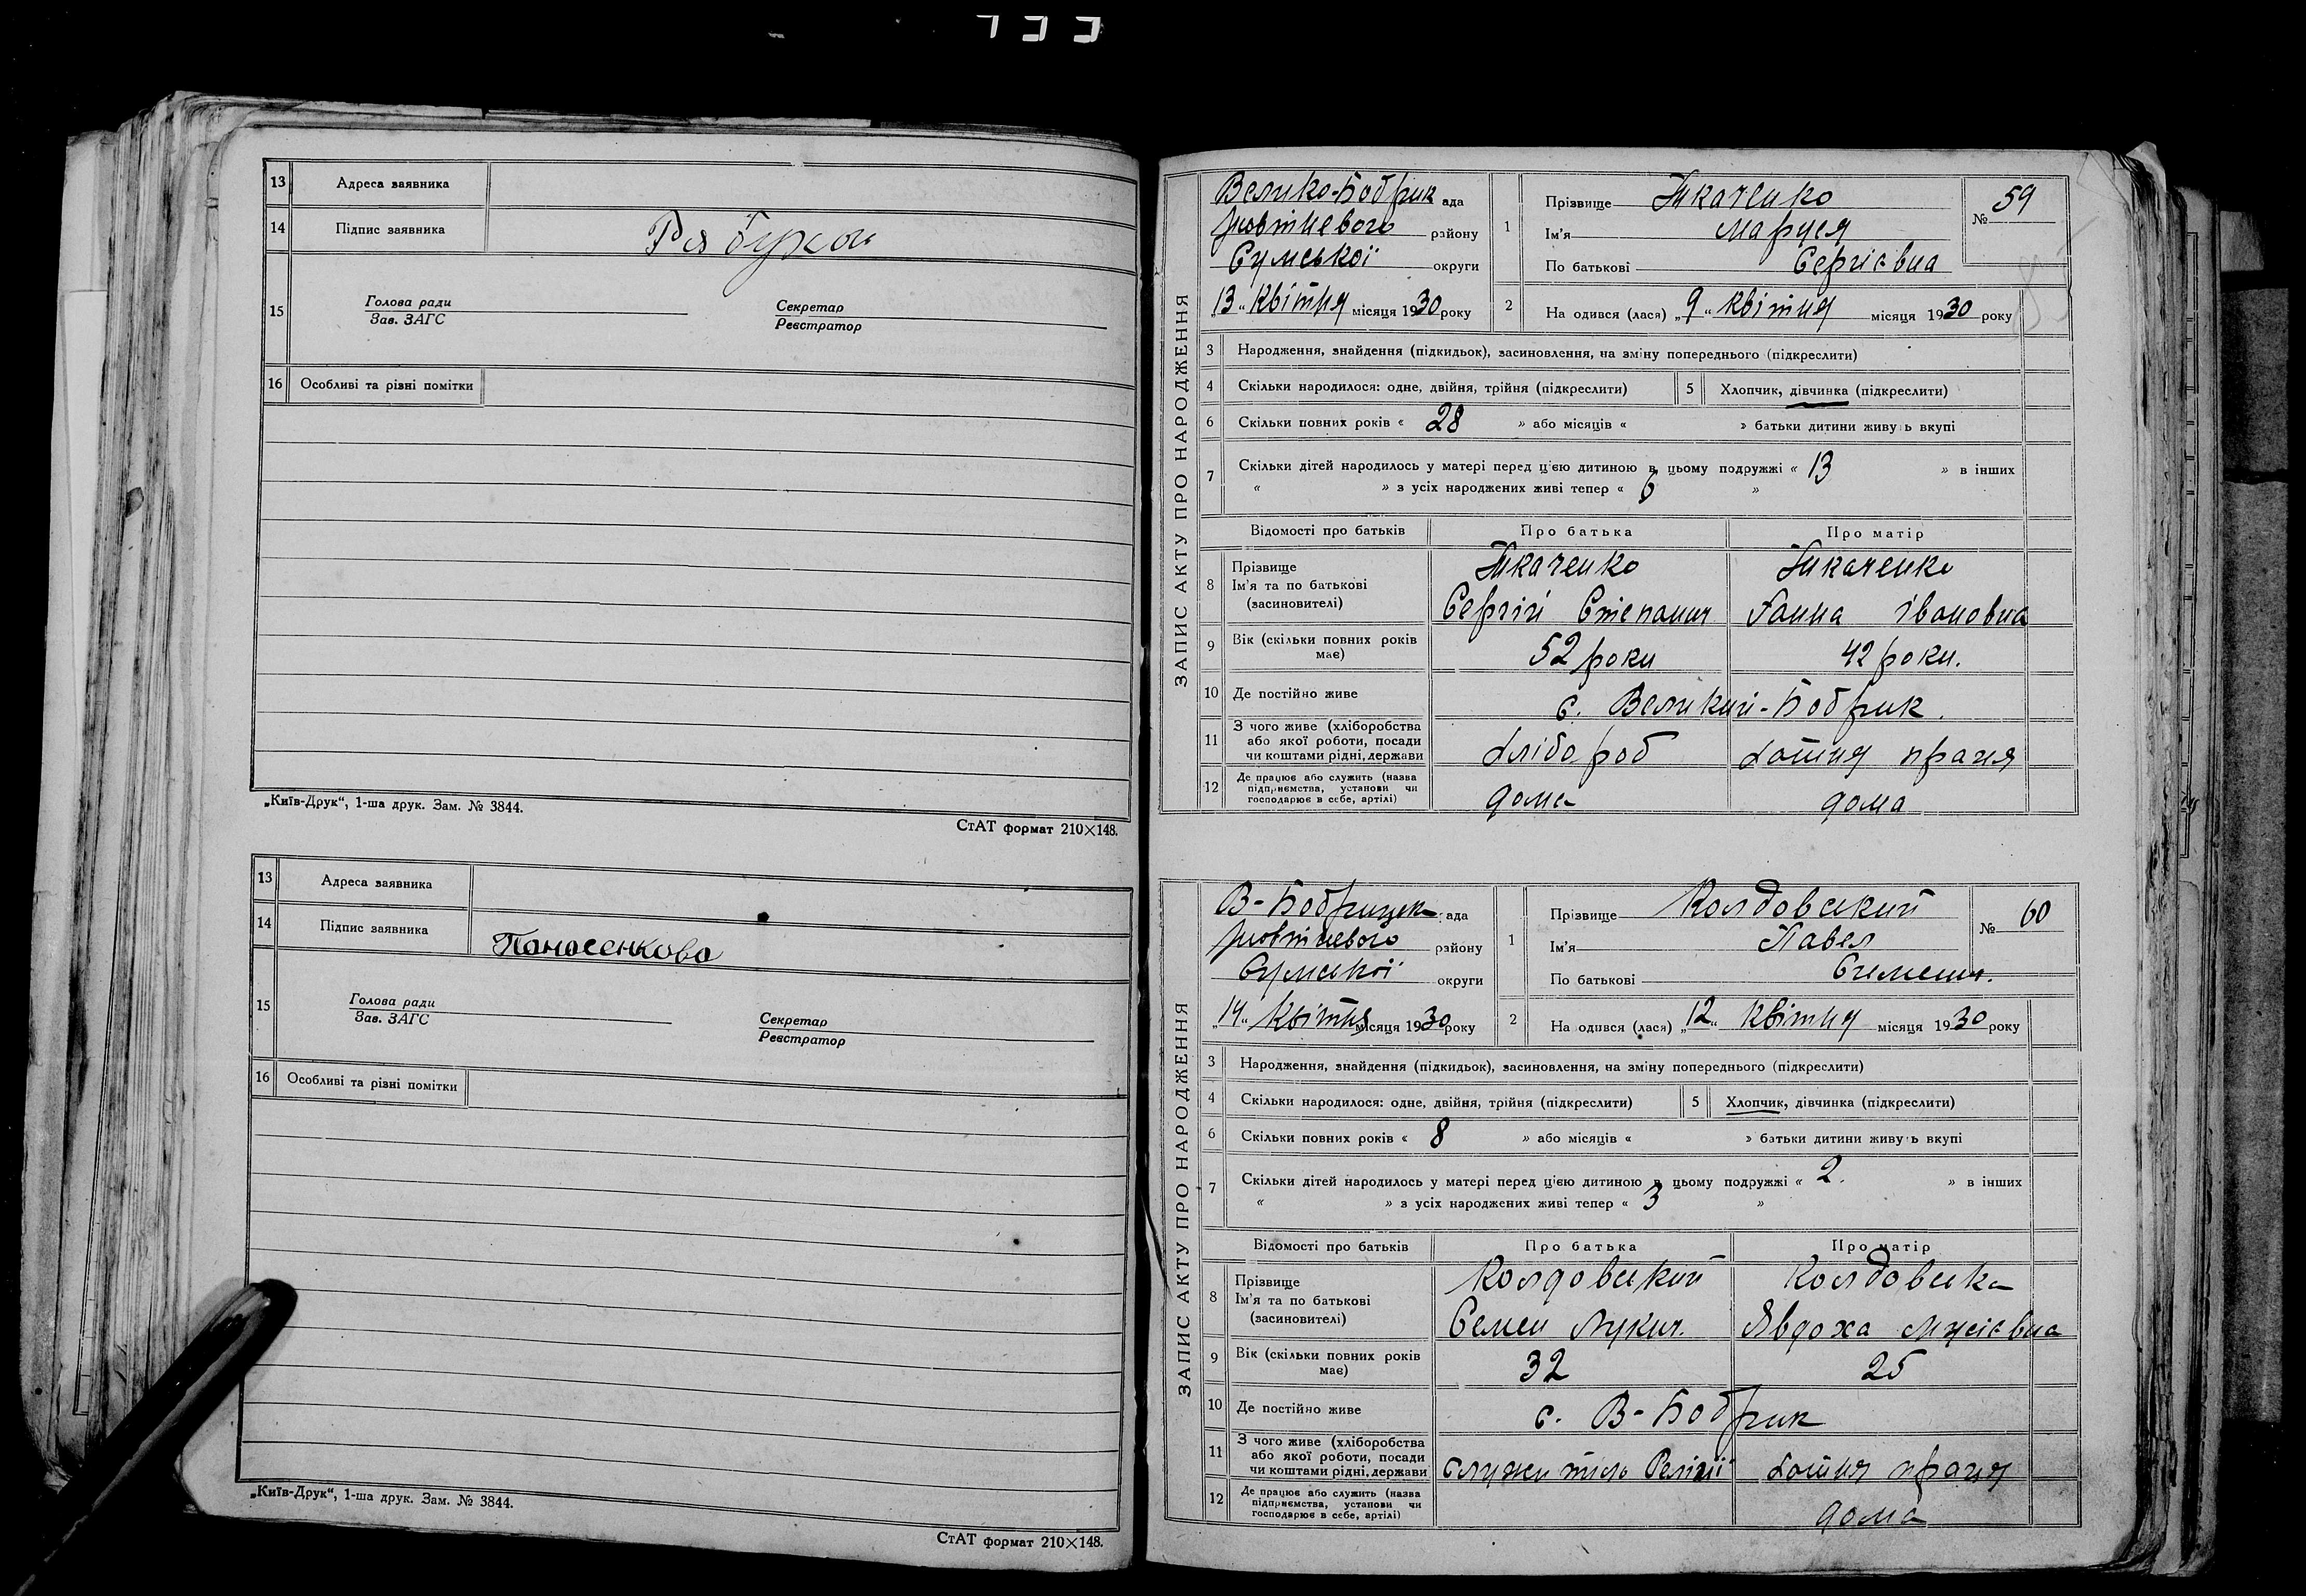 13 Адреса заявника
14 Підпис заявника Рябуха
15 Голова ради
Зав. ЗАГС
Секретар
Реєстратор
16 Особливі та різні помітки
„Київ-Друк“, 1-ша друк. Зам. № 3844.
СтАТ формат 210×148.
13 Адреса заявника
14 Підпис заявника Панасенкова
15 Голова ради
Зав. ЗАГС
Секретар
Реєстратор
16 Особливі та різні помітки
„Київ-Друк“, 1-ша друк. Зам. № 3844.
СтАТ формат 210×148.
ЗАПИС АКТУ ПРО НАРОДЖЕННЯ
Велико-Бобрик ада
району
Сумської округи
„13“ Квітня місяця 1930 року
1 Прізвище Ткаченко
Ім'я
По батькові Сергієвна
№ 59
2 На одився (лася) „9“ Квітня місяця 1930 року
3 Народження, знайдення (підкидьок), засиновлення, на зміну попереднього (підкреслити)
4 Скільки народилося: одне, двійня, трійня (підкреслити) 5 Хлопчик, дівчинка (підкреслити)
6 Скільки повних років « 28 » або місяців « » батьки дитини живу ь вкупі
7 Скільки дітей народилось у матері перед цією дитиною в цьому подружжі « 13 » в інших
« » з усіх народжених живі тепер « 6 »
Відомості про батьків Про батька Про матір
8 Прізвище Ткаченко Ткаченко
Ім'я та по батькові
(засиновителі) Сергій Степанич Ганна Івановна
9 Вік (скільки повних років
має) 52 роки 42 роки.
10 Де постійно живе с. Великий-Бобрик.
11 З чого живе (хліборобства
або якої роботи, посади
чи коштами рідні, держави хлібороб хатня праця
12 Де працює або служить (назва
підприємства, установи чи
господарює в себе, артілі) дома дома
ЗАПИС АКТУ ПРО НАРОДЖЕННЯ
ада
району
Сумської округи
„14“ Квітня місяця 1930 року
1 Прізвище Колдовский
Ім'я Павел
По батькові
№ 60
2 На одився (лася) „12“ Квітня місяця 1930 року
3 Народження, знайдення (підкидьок), засиновлення, на зміну попереднього (підкреслити)
4 Скільки народилося: одне, двійня, трійня (підкреслити) 5 Хлопчик, дівчинка (підкреслити)
6 Скільки повних років « 8 » або місяців « » батьки дитини живу ь вкупі
7 Скільки дітей народилось у матері перед цією дитиною в цьому подружжі « 2. » в інших
« » з усіх народжених живі тепер « 3 »
Відомості про батьків Про батька Про матір
8 Прізвище Колдовский Колдовська
Ім'я та по батькові
(засиновителі) Семен Лукич. Явдоха
9 Вік (скільки повних років
має) 32 25
10 Де постійно живе с. В-Бобрик
11 З чого живе (хліборобства
або якої роботи, посади
чи коштами рідні, держави служитиль Релігії хатня праця
12 Де працює або служить (назва
підприємства, установи чи
господарює в себе, артілі) дома